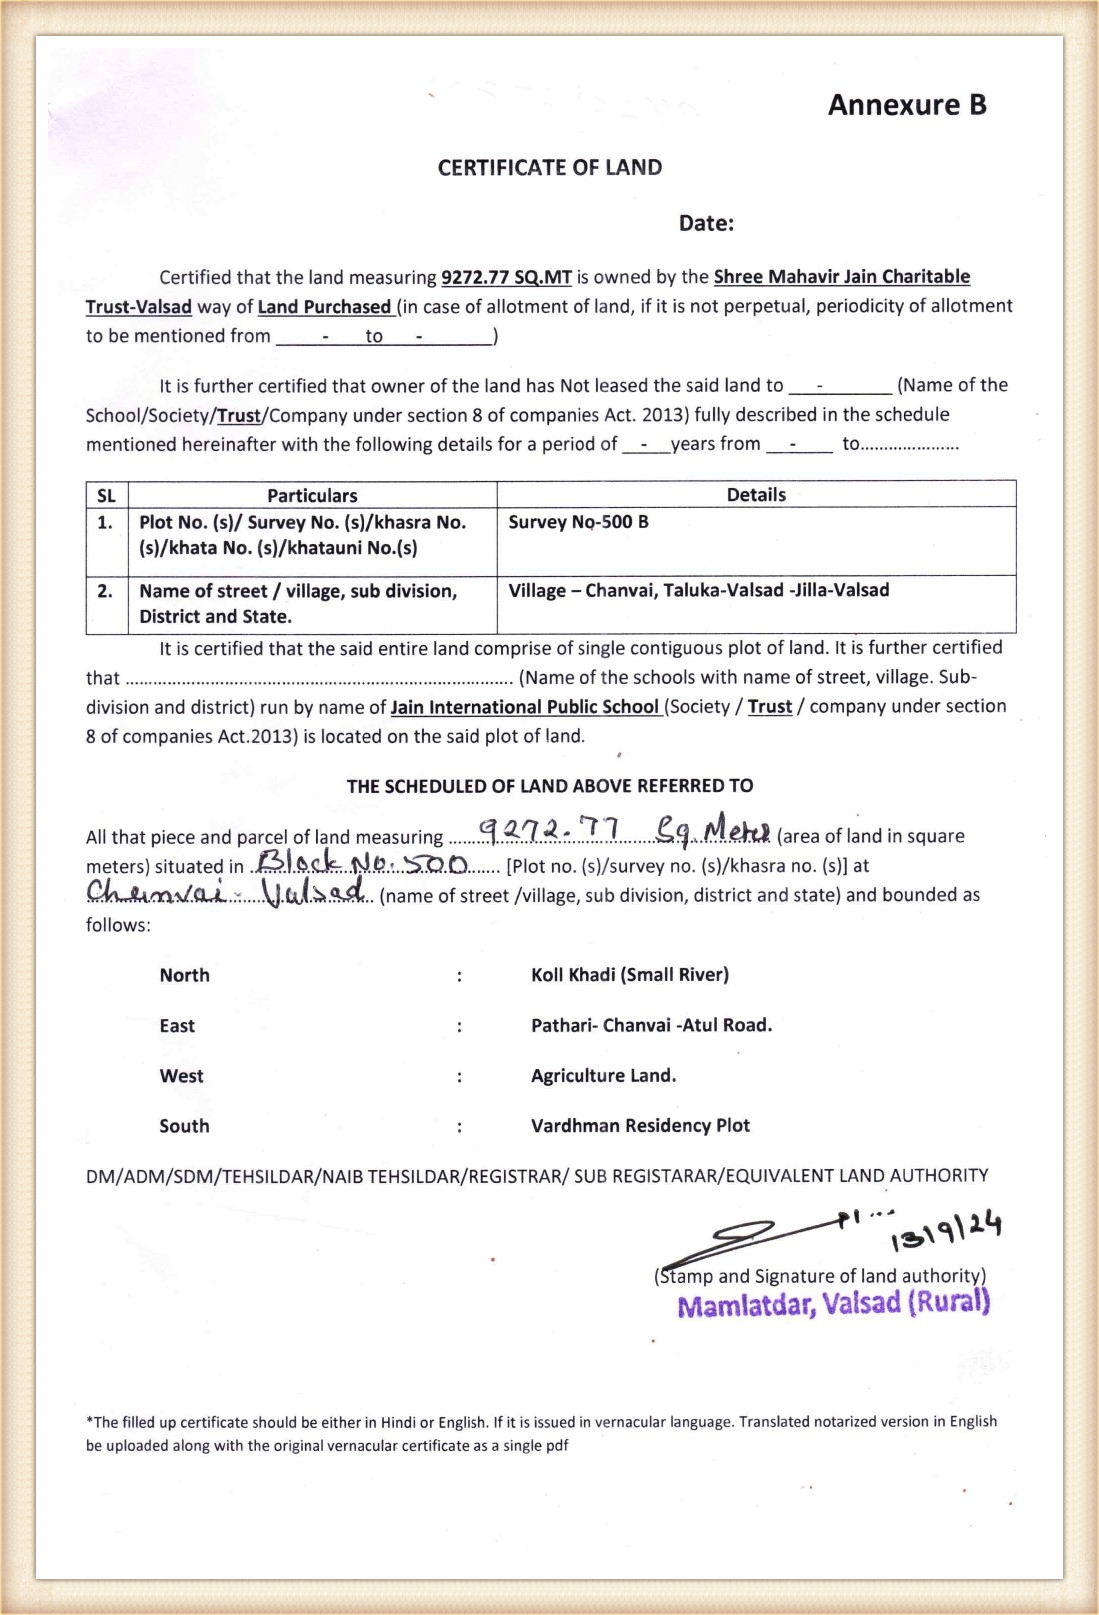 Annexure B
CERTIFICATE OF LAND
Date:
Certified that the land measuring 9272.77 SQ.MT is owned by the Shree Mahavir Jain Charitable
Trust-Valsad way of Land Purchased (in case of allotment of land, if it is not perpetual, periodicity of allotment
to be mentioned from ______-____to____-_______)
It is further certified that owner of the land has Not leased the said land to ___-_______ (Name of the
School/Society/Trust/Company under section 8 of companies Act. 2013) fully described in the schedule
mentioned hereinafter with the following details for a period of __-__years from __-____ to.....................
SL Particulars Details
1. Plot No. (s)/ Survey No. (s)/khasra No. Survey No-500 B
(s)/khata No. (s)/khatauni No.(s)
2. Name of street / village, sub division, Village – Chanvai, Taluka-Valsad -Jilla-Valsad
District and State.
It is certified that the said entire land comprise of single contiguous plot of land. It is further certified
that ................................................................................ (Name of the schools with name of street, village. Sub-
division and district) run by name of Jain International Public School (Society / Trust / company under section
8 of companies Act.2013) is located on the said plot of land.
THE SCHEDULED OF LAND ABOVE REFERRED TO
All that piece and parcel of land measuring ........9272.77 Sq. Meter (area of land in square
meters) situated in .Block No. 500....... [Plot no. (s)/survey no. (s)/khasra no. (s)] at
Chanvai - Valsad.. (name of street /village, sub division, district and state) and bounded as
follows:
North : Koll Khadi (Small River)
East : Pathari- Chanvai -Atul Road.
West : Agriculture Land.
South : Vardhman Residency Plot
DM/ADM/SDM/TEHSILDAR/NAIB TEHSILDAR/REGISTRAR/ SUB REGISTARAR/EQUIVALENT LAND AUTHORITY
13/9/24
(Stamp and Signature of land authority)
Mamlatdar, Valsad (Rural)
*The filled up certificate should be either in Hindi or English. If it is issued in vernacular language. Translated notarized version in English
be uploaded along with the original vernacular certificate as a single pdf